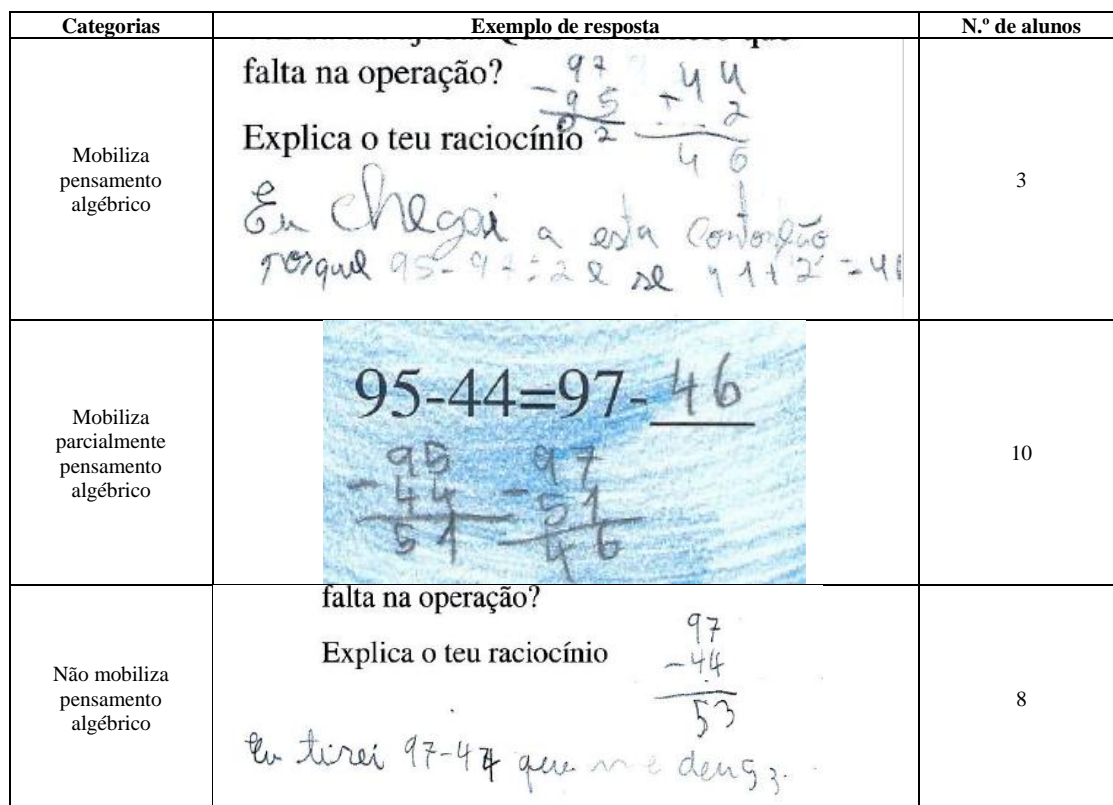 Categorias Exemplo de resposta N.º de alunos
Mobiliza pensamento algébrico
falta na operação?
Explica o teu raciocínio
97
-95
02
44
+ 2
46
Eu chegai a esta
porque 95-97=2 e se
3
Mobiliza parcialmente pensamento algébrico
95-44=97-46
95
-44
51
97
-51
46
10
Não mobiliza pensamento algébrico
falta na operação?
Explica o teu raciocínio
97
-44
53
Eu tirei 97-44 que me deu
8